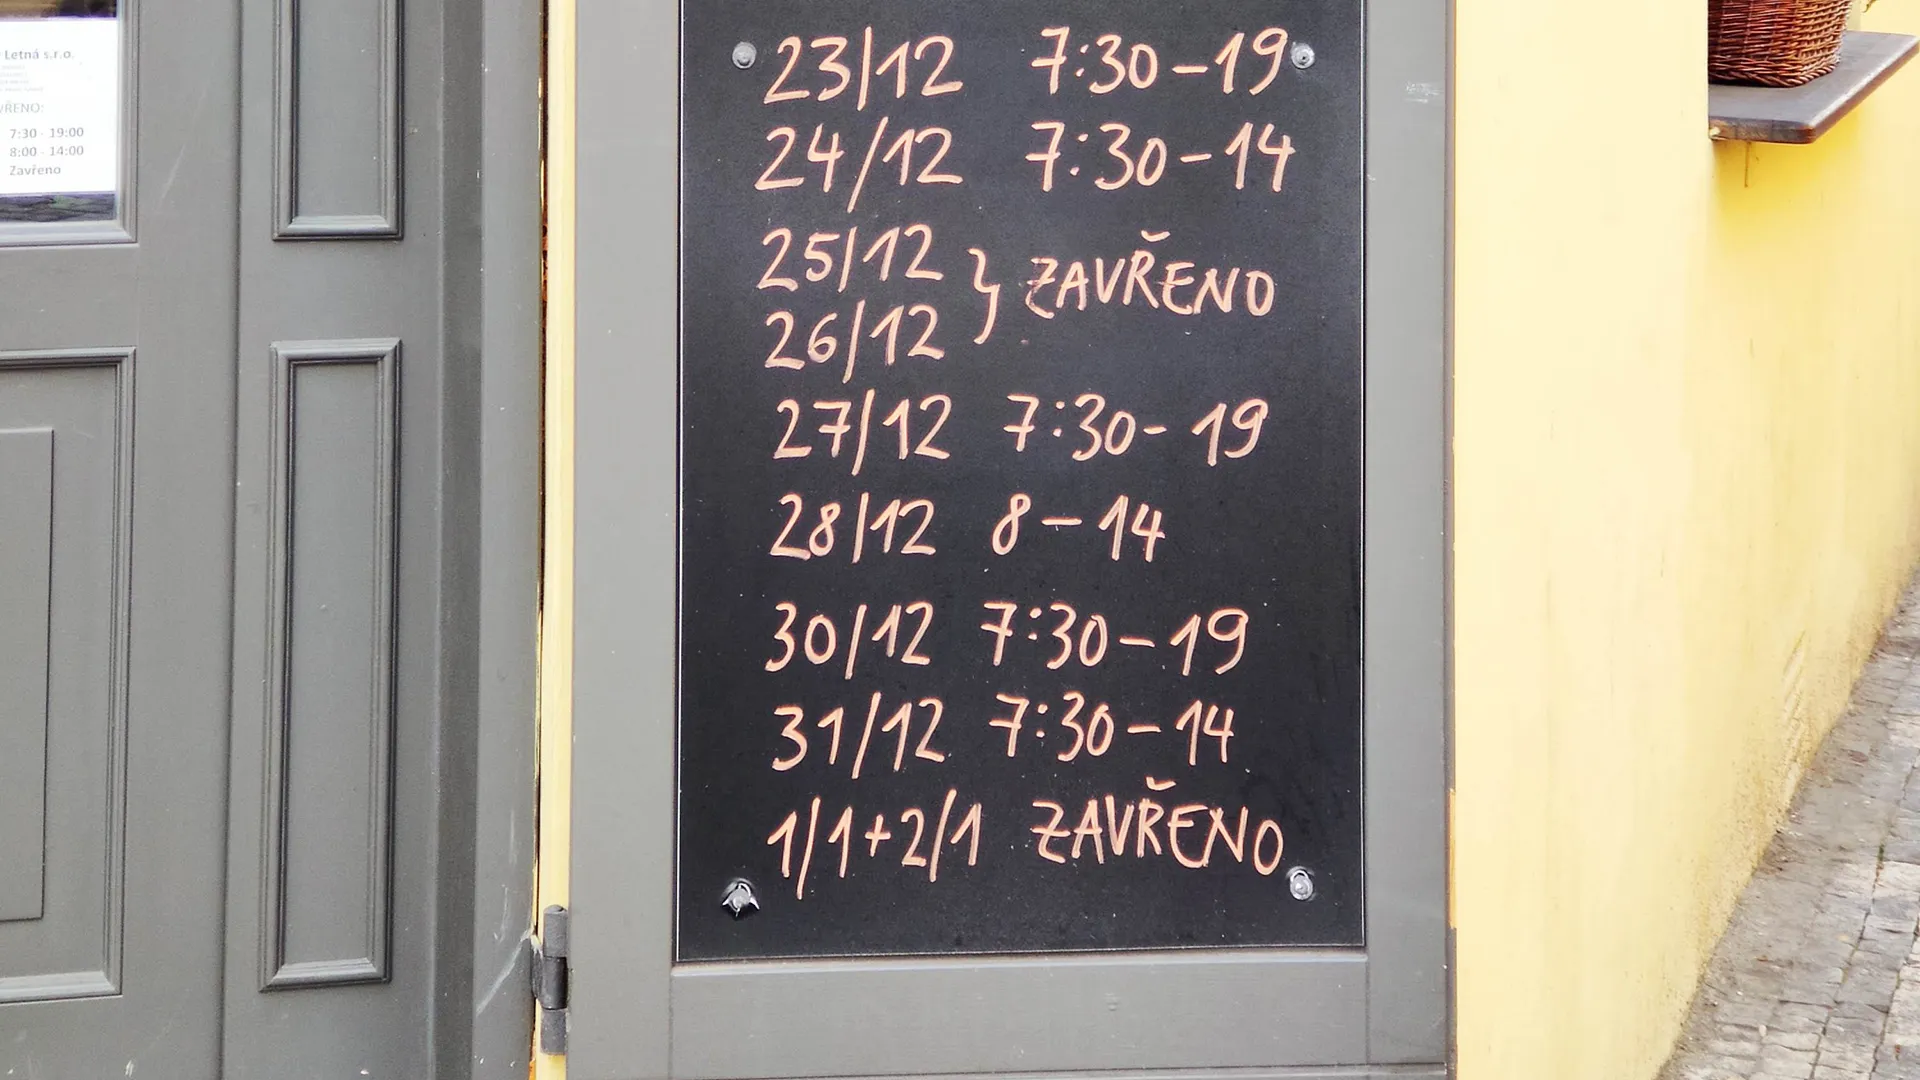 Letná s.r.o.
7:30 - 19:00
8:00 - 14:00
Zavřeno
23/12 7:30-19
24/12 7:30-14
25/12 } ZAVŘENO
26/12
27/12 7:30-19
28/12 8-14
30/12 7:30-19
31/12 7:30-14
1/1+2/1 ZAVŘENO